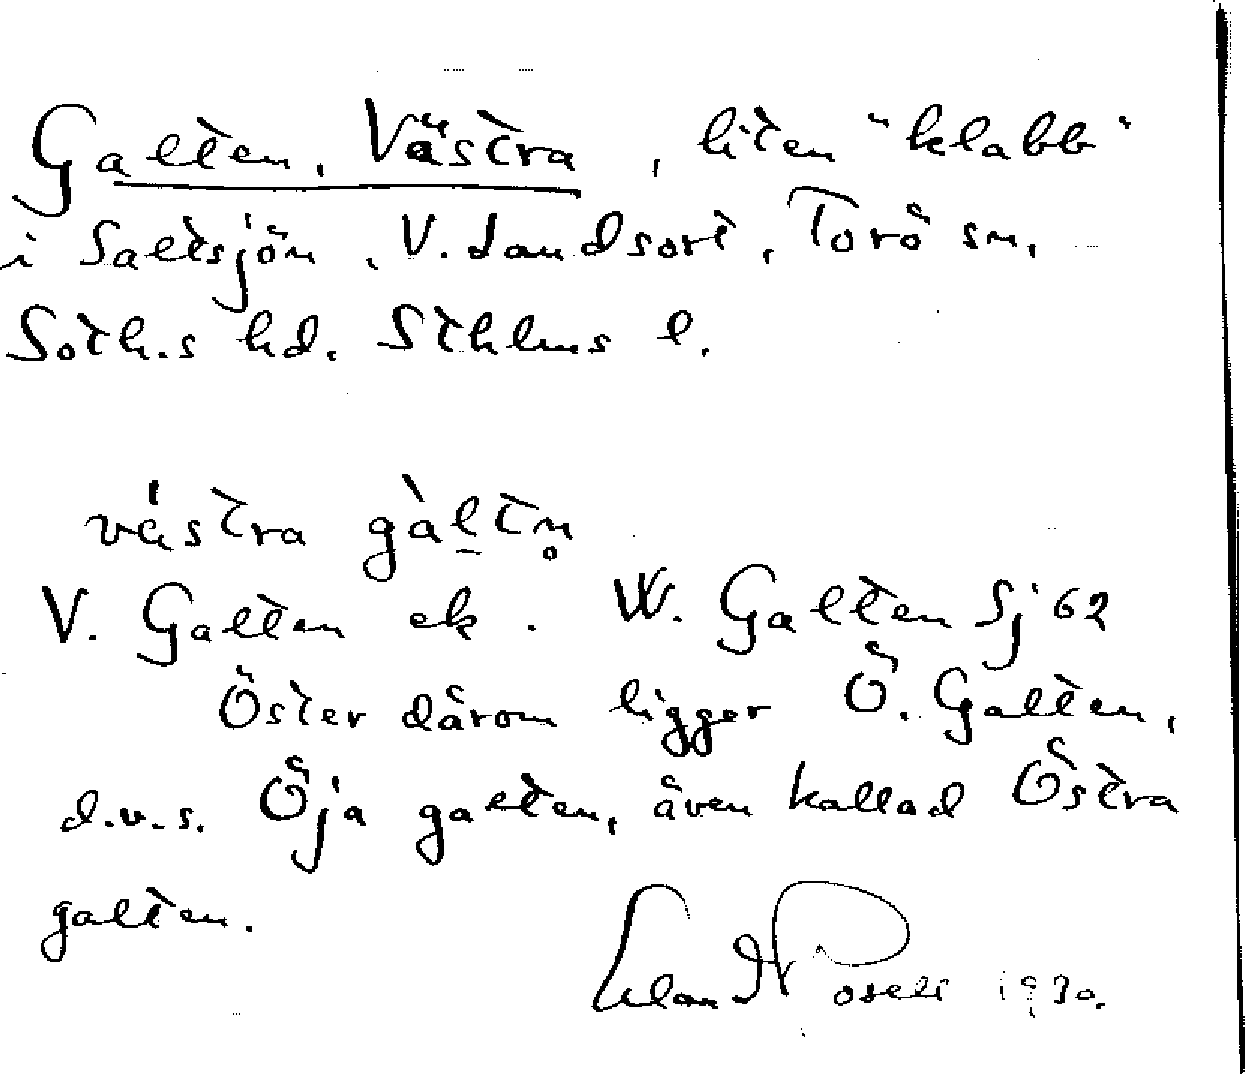 Galten, Västra, liten "klabb"
i Saltsjön, V. Landsort, Torö sn.
Soth.s hd. Sthlms l.
västra gàltn̥
V. Galten ek. W. Galten Sj '62
Öster därom ligger Ö. Galten,
d.v.s. Öja galten, även kallad Östra
galten.
1930.